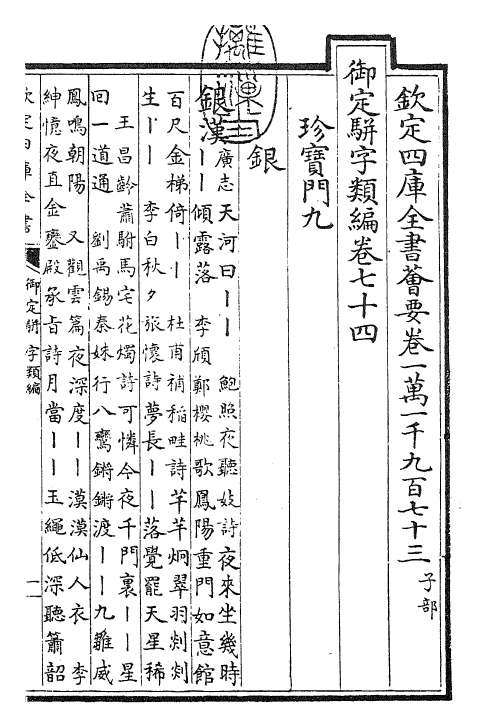 欽定四庫全書薈要卷一萬一千九百七十三 子部
御定駢字類編卷七十四
珍寶門九
銀
銀漢 廣志天河曰丨丨 鮑照夜聽妓詩夜來坐幾時
丨丨傾露落 李頎鄭櫻桃歌鳳陽重門如意館
百尺金梯倚丨丨 杜甫補稻畦詩芊芊炯翠羽剡剡
生丨丨 李白秋夕旅懷詩夢長丨丨落覺罷天星稀
王昌齡蕭駙馬宅花燭詩可憐今夜千門裏丨丨星
回一道通 劉禹錫泰姝行八鸞鏘鏘渡丨丨九雛威
鳳鳴朝陽 又觀雲篇夜深度丨丨漠漠仙人衣 李
紳憶夜直金鑾殿承旨詩月當丨丨玉繩低深聽簫韶
欽定四庫全書
御定駢字類編
一